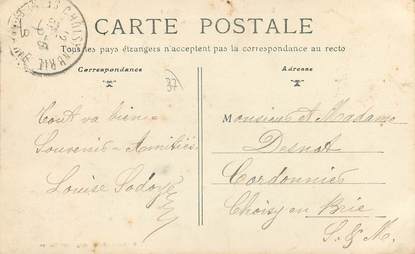 CARTE POSTALE
Tous les pays étrangers n'acceptent pas la correspondance au recto
Correspondance
Adresse
Tout va bien
Souvenir - Amitiés
Louise
Monsieur et Madame
Desnot
Cordonnier
Choisy en Brie
S. & M.